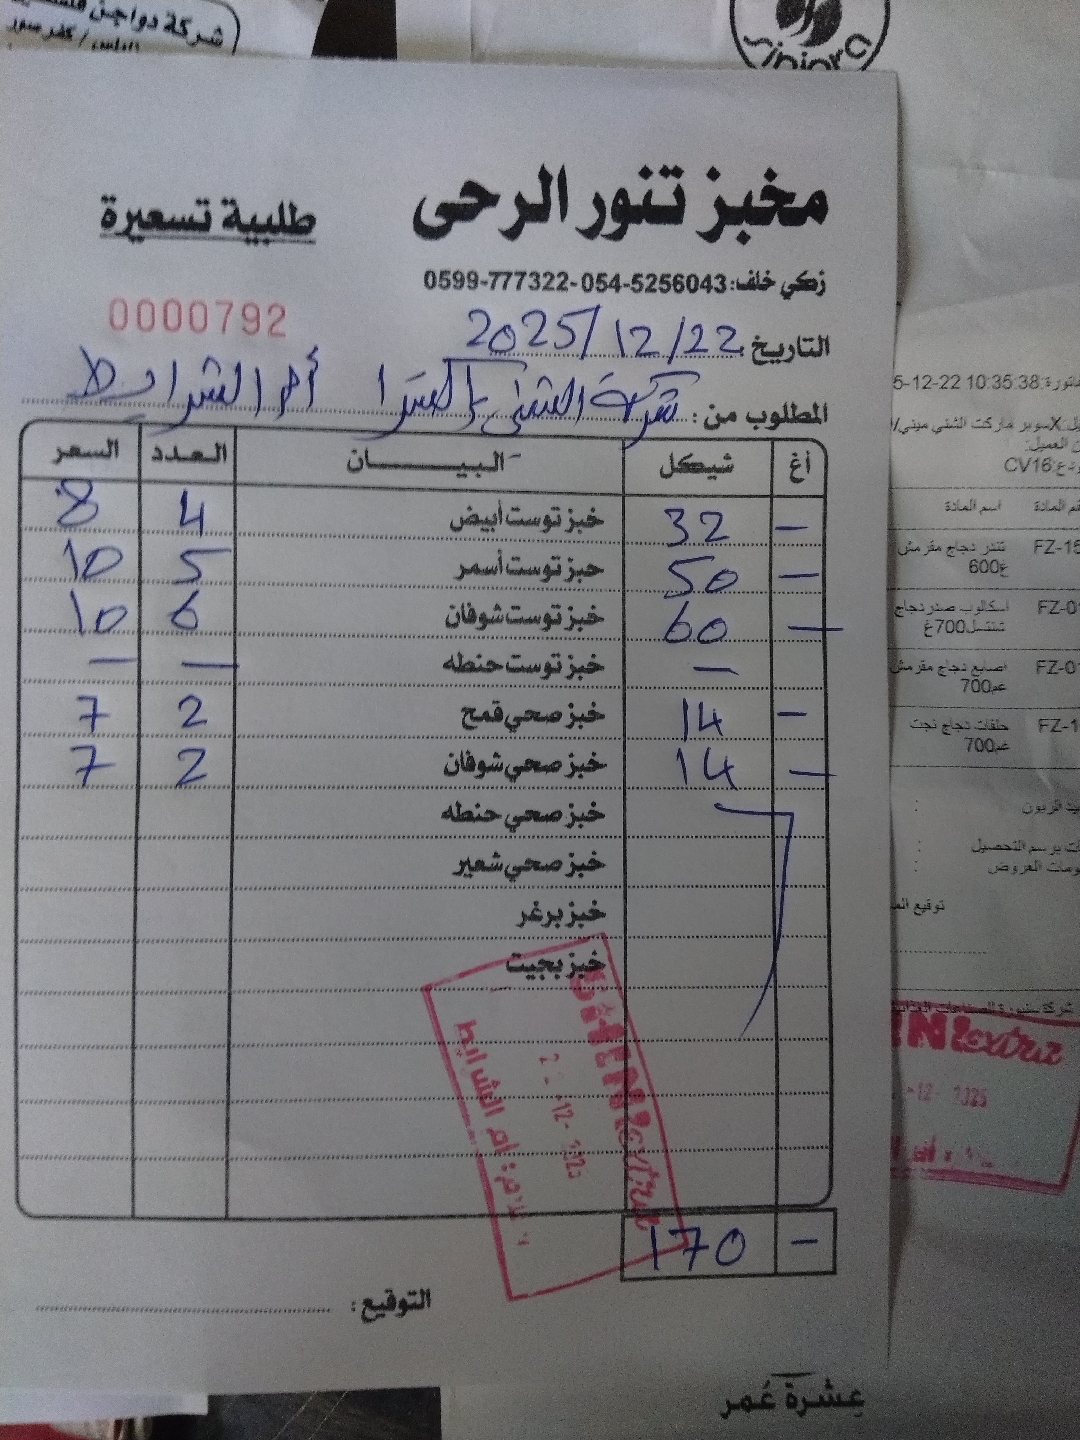 شركة دواجن فلسطين
مخبز تنور الرحى
طلبية تسعيرة
زكي خلف: 054-5256043 - 0599-777322
0000792
التاريخ: 2025/12/22
المطلوب من: شركة الشني إكسترا أم الشرايط
أغ شيكل البيــــــان العدد السعر
- 32 خبز توست أبيض 4 8
- 50 خبز توست أسمر 5 10
- 60 خبز توست شوفان 6 10
- خبز توست حنطه - -
- 14 خبز صحي قمح 2 7
- 14 خبز صحي شوفان 2 7
خبز صحي حنطه
خبز صحي شعير
خبز برغر
خبز بجيت
170 -
التوقيع:
extra
أم الشرايط
5-12-22 10:35:38
سوبر ماركت الشني ميني
CV16
اسم المادة
تندر دجاج مقرمش
600غ
اسكالوب صدر دجاج
شنتسل 700غ
اصابع دجاج مقرمش
700غم
حلقات دجاج نجت
700غم
توقيع
extra
عِشرة عُمر